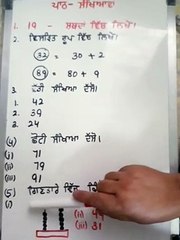 ਪਾਠ- ਸੰਖਿਆਵਾਂ
1. 19 - ਸ਼ਬਦਾਂ ਵਿੱਚ ਲਿਖੋ।
2. ਵਿਸਤਰਿਤ ਰੂਪ ਵਿੱਚ ਲਿਖੋ।
32 = 30 + 2
89 = 80 + 9
3. ਵੱਡੀ ਸੰਖਿਆ ਦੱਸੋ।
1. 42
2. 39
3. 24
(4) ਛੋਟੀ ਸੰਖਿਆ ਦੱਸੋ।
(i) 71
(ii) 79
(iii) 91
(5) ਗਿਣਤਾਰੇ ਵਿੱਚ
(i)
(ii) 49
(iii) 31